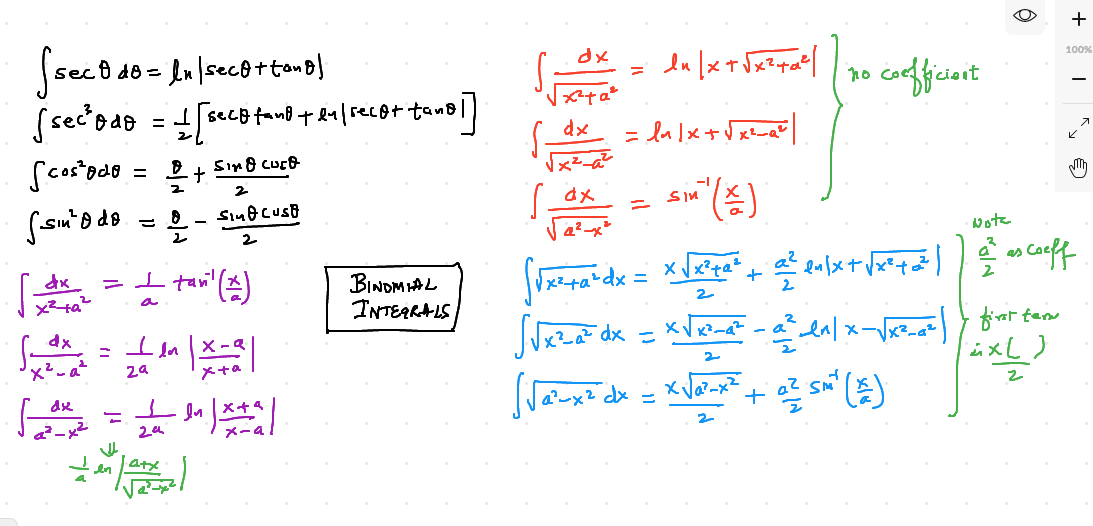 ∫ sec θ dθ = ln |secθ + tanθ|
∫ sec³ θ dθ = 1/2 [secθ tanθ + ln |secθ + tanθ|]
∫ cos²θ dθ = θ/2 + sinθ cosθ/2
∫ sin²θ dθ = θ/2 - sinθ cosθ/2
∫ dx/(x²+a²) = 1/a tan⁻¹(x/a)
∫ dx/(x²-a²) = 1/2a ln |(x-a)/(x+a)|
∫ dx/(a²-x²) = 1/2a ln |(x+a)/(x-a)|
⇓
1/a ln |(a+x)/√(a²-x²)|
BINOMIAL
INTEGRALS
∫ dx/√(x²+a²) = ln |x+√(x²+a²)|
∫ dx/√(x²-a²) = ln |x+√(x²-a²)|
∫ dx/√(a²-x²) = sin⁻¹(x/a)
no coefficient
∫√(x²+a²) dx = x√(x²+a²)/2 + a²/2 ln |x+√(x²+a²)|
∫√(x²-a²) dx = x√(x²-a²)/2 - a²/2 ln |x-√(x²-a²)|
∫√(a²-x²) dx = x√(a²-x²)/2 + a²/2 sin⁻¹(x/a)
Note
a²/2 as coeff
first term
is x( )/2
+
100%
−